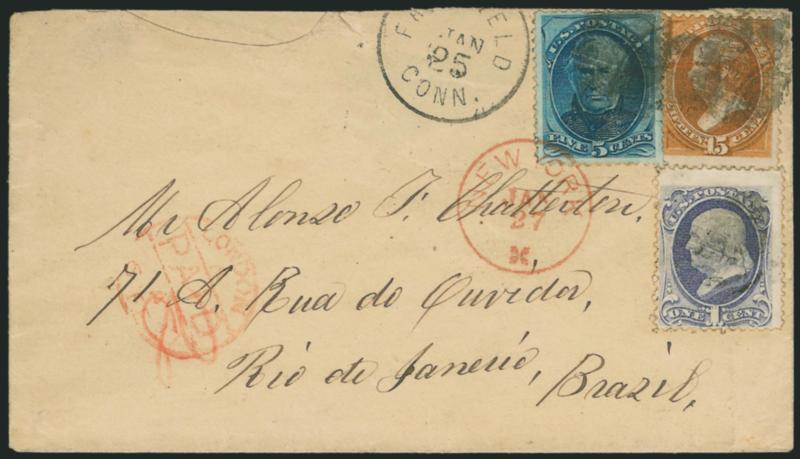 FAIRFIELD
JAN
25
CONN.
U.S. POSTAGE
FIVE 5 CENTS
15
CENTS
NEW YORK
JAN
27
U.S. POSTAGE
ONE 1 CENT
LONDON
PAID
Mr Alonzo F. Chatterton,
71 A. Rua do Ouvidor,
Rio de Janerió, Brazil,